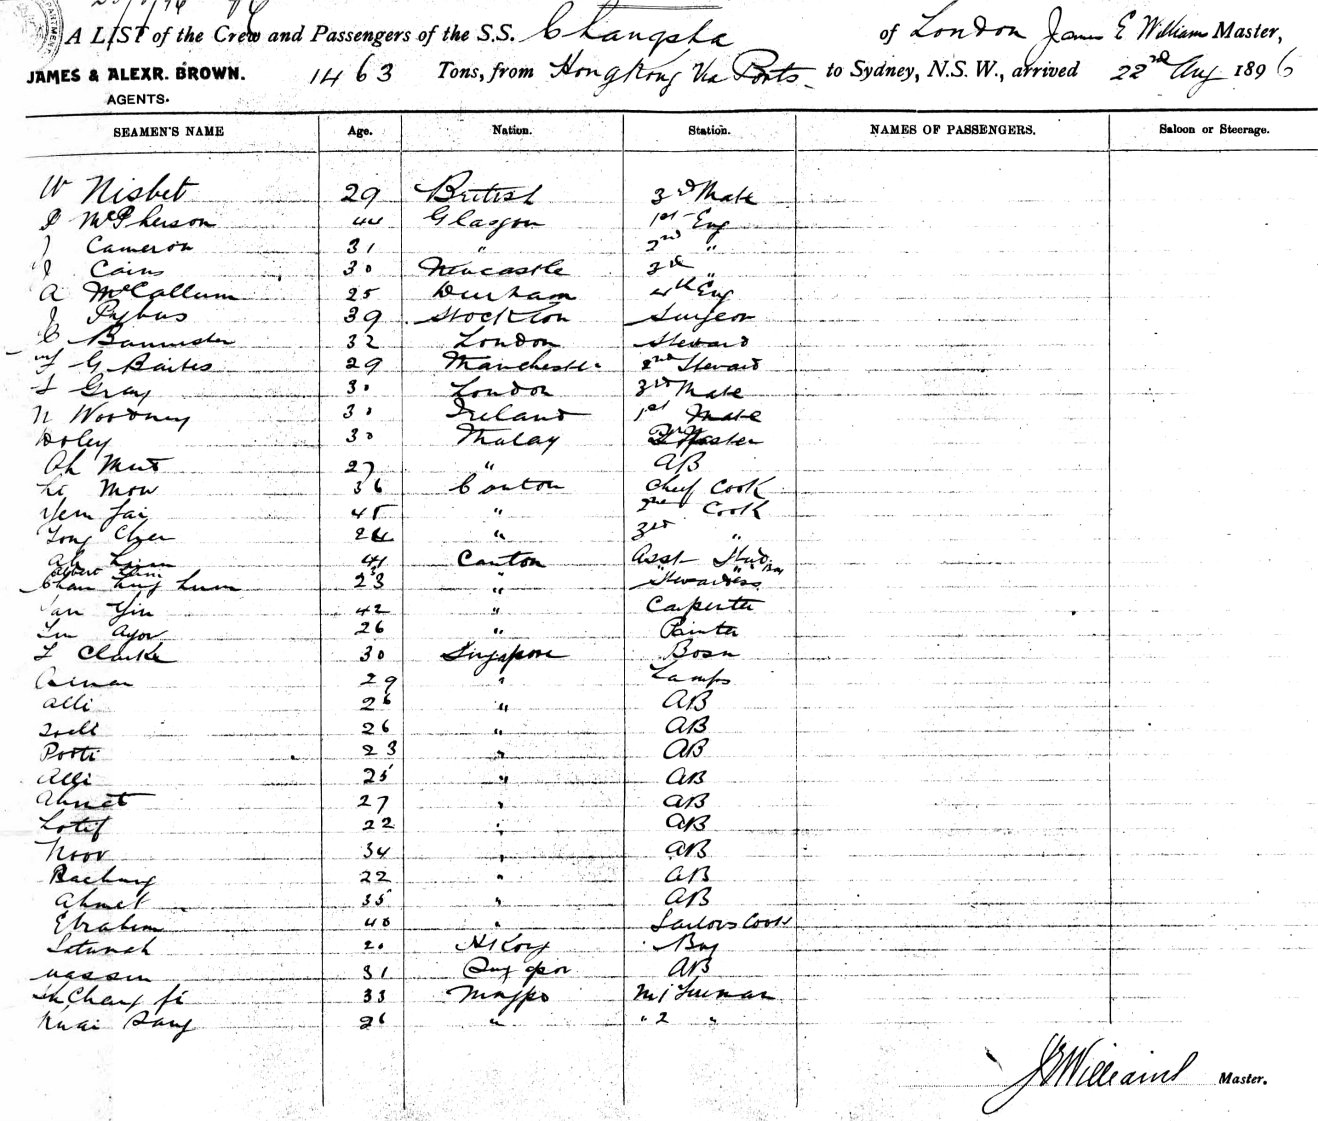 A LIST of the Crew and Passengers of the S.S. Changsha of London James E William Master,
JAMES & ALEXR. BROWN. 1463 Tons, from Hongkong Via Ports to Sydney, N.S.W., arrived 22nd Aug 1896
AGENTS.
SEAMEN'S NAME Age. Nation. Station. NAMES OF PASSENGERS. Saloon or Steerage.
W Nisbet 29 British 3rd Mate
D McPherson 44 Glasgow 1st Eng
J Cameron 31 " 2nd "
J Cains 30 Newcastle 3rd "
A McCallum 25 Durham 4th Eng
J Pybus 39 Stockton Surgeon
C Bannister 32 London Steward
G Bartes 29 Manchester 2nd Steward
Gray 30 London 3rd Mate
N Woodney 30 Ireland 1st Mate
Doley 30 Malay
Ah Mut 27 " AB
Li Mow 36 Canton Chief Cook
Yem Jai 45 " 2nd Cook
Tong Chee 24 " 3rd "
41 Canton Asst Stwd
Chan Lung Lum 23 " Stewardess
Yin 42 " Carpenter
26 " Painter
Clarke 30 Singapore Bosn
29 " Lamps
Alli 26 " AB
26 " AB
Pooti 23 " AB
Alli 25 " AB
Ahmet 27 " AB
Lotif 22 " AB
Noor 34 " AB
22 " AB
Ahmet 35 " AB
Ebrahim 40 " Sailors Cook
20 HKong Boy
Wassim 31 Singapor AB
Chang fi 33 Ningpo No 1 Fireman
Kwai Sang 26 " " 2 "
JEWilliams Master.